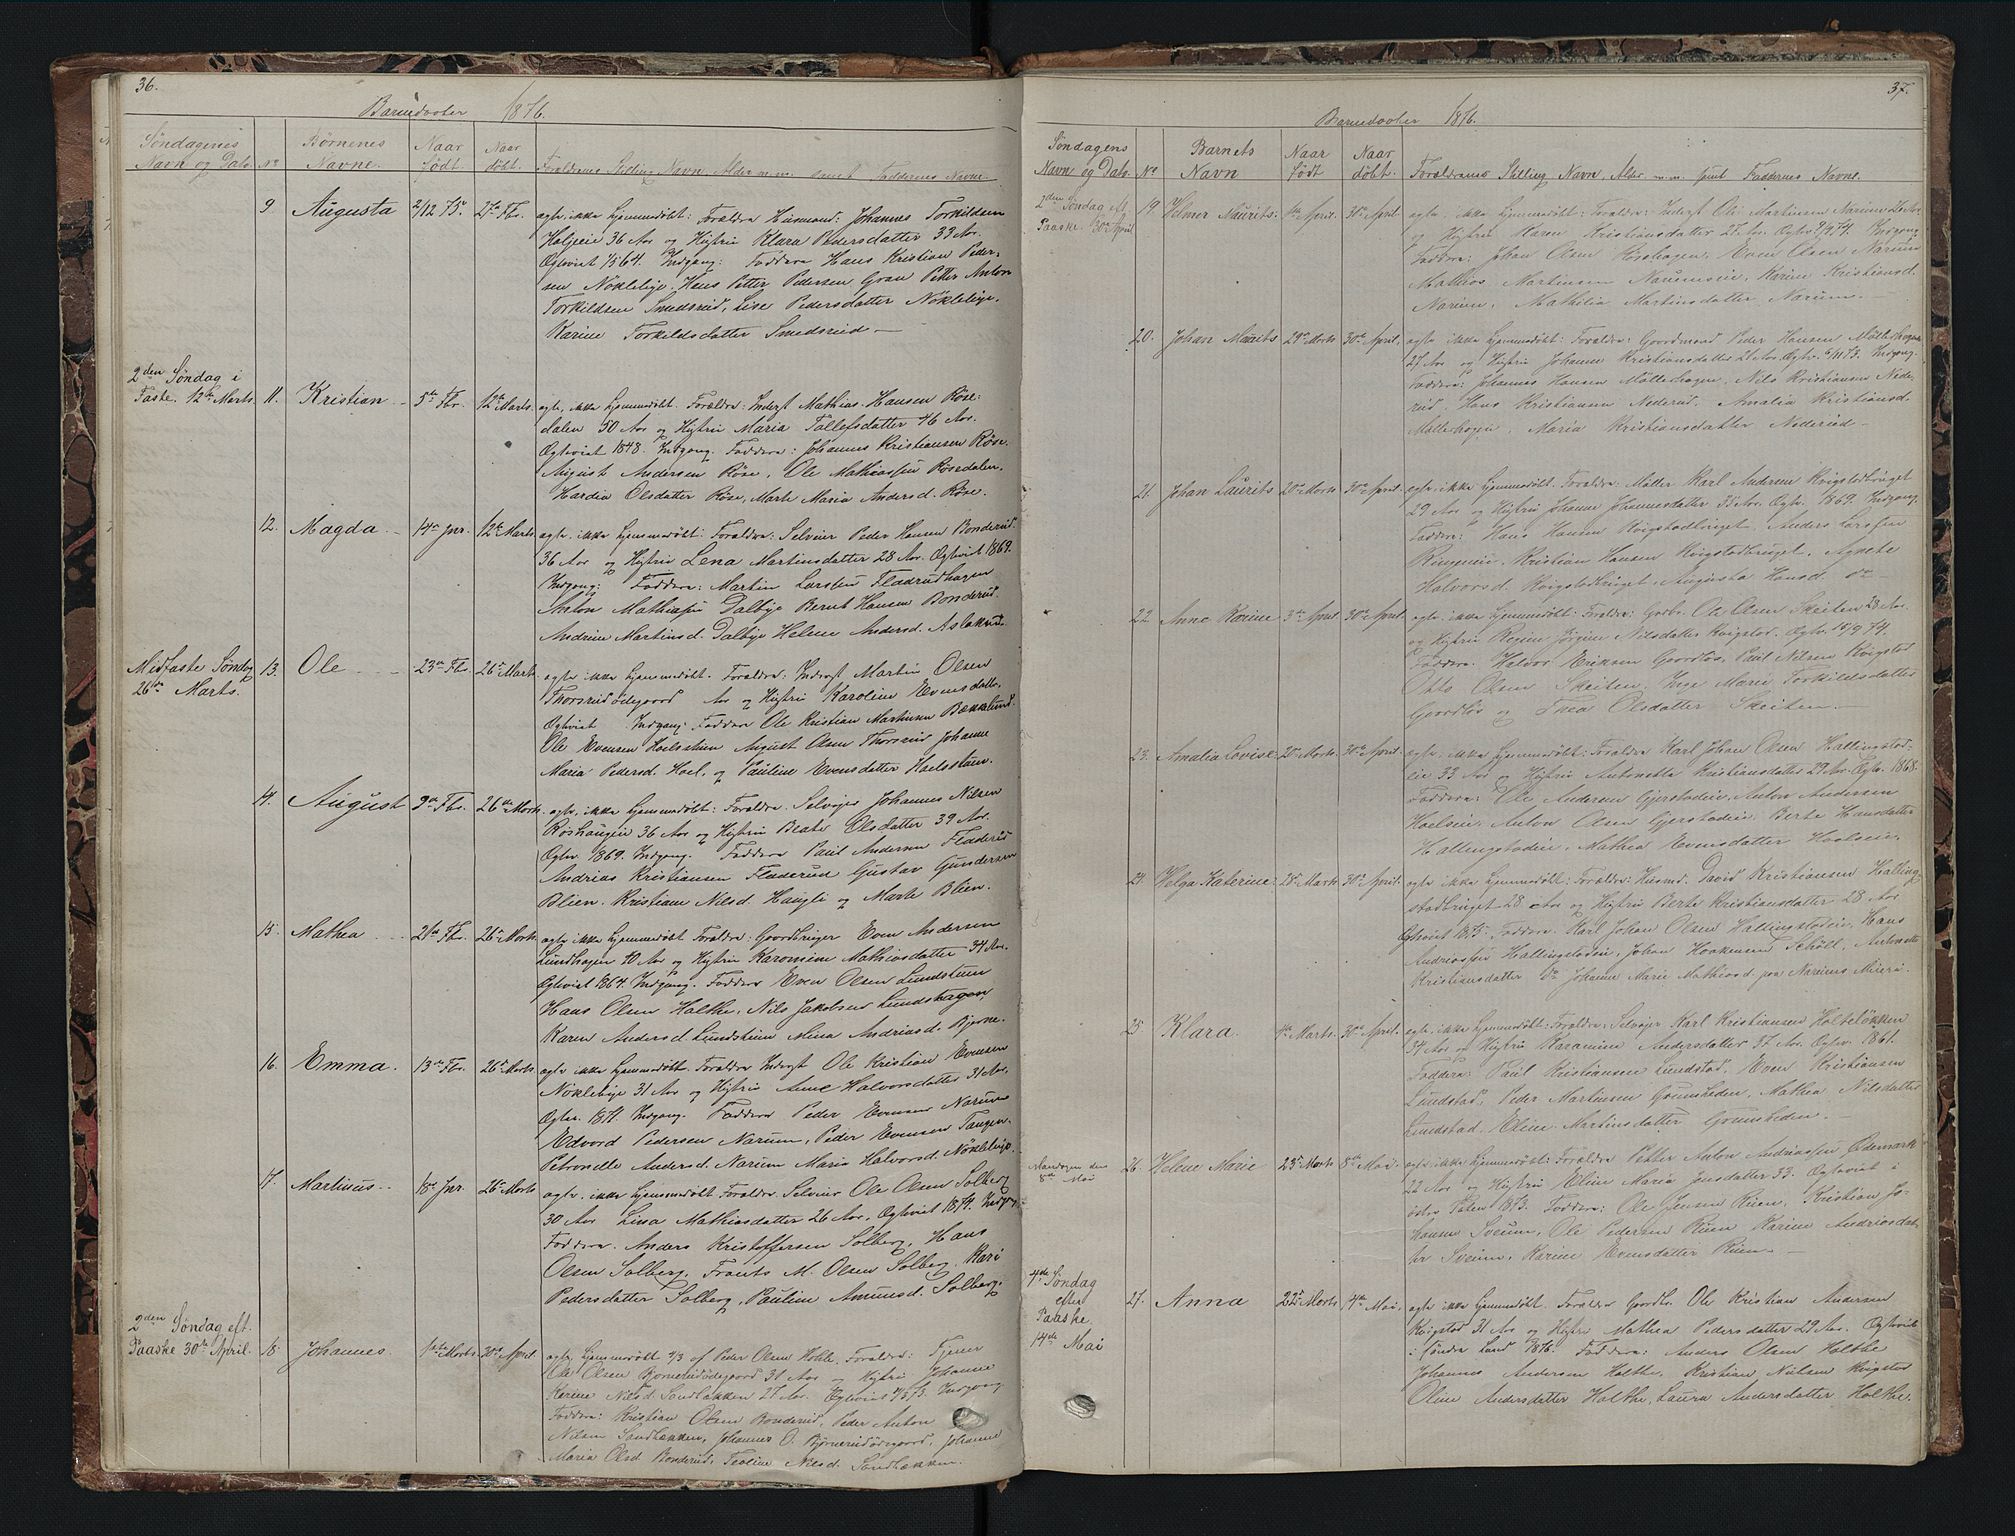 36.
Barnedoober 1876.
Søndagenes Navn og Dato. No Børnenes Navne. Naar født. Naar døbt. Forældrenes Stilling Navn, Alder m.m. samt Faddernes Navne.
9 Augusta 2/12 75. 27de Fbr. ægte, ikke hjemmedøbt: Forældre Husmand: Johannes Torkildsen
36 Aar og Hustru Klara Pedersdatter 39 Aar.
Ægteviet 1/3 64. Indgang: Faddere Hans Kristian Peder-
sen Nøklebye. Hans Petter Pedersen Gran Petter Anton
Torkildsen Smedsrud, Lise Pedersdatter Nøklebye.
Karine Torkildsdatter Smedsrud —
2den Søndag i
Faste. 12te Marts. 11. Kristian 5te Fbr. 12te Marts. ægte, ikke hjemmedøbt. Forældre: Inderst Mathias Hansen Røse-
dalen 50 Aar og Hustru Maria Tollefsdatter 46 Aar.
Ægteviet 1848. Indgang. Faddere: Johannes Kristiansen Røse.
August Andersen Røse. Ole Mathiassen Røsedalen.
Olsdatter Røse, Marte Maria Andersd. Røse.
12. Magda 14de Jnr. 12te Marts. ægte, ikke hjemmedøbt: Forældre: Selveier Peder Hansen Bonderud
36 Aar og Hustru Lena Martinsdatter 28 Aar. Ægteviet 1869.
Indgang: Faddere: Martin Larssen Fladrudhagen
Anton Mathiassen Dalbye Bernt Hansen Bonderud.
Andrine Martinsd. Dalbye Helene Andersd. Aslakrud.
Midfaste Søndag
26de Marts. 13. Ole 23de Fbr. 26de Marts ægte, ikke hjemmedøbt. Forældre: Inderst Martin Olsen
Thorsrudødegaard Aar og Hustru Karoline Evensdatter.
Ægteviet Indgang: Faddere Ole Kristian Martinsen Bækkelund.
Ole Evensen Hoelsstuen August Olsen Thorsrud Johanne
Maria Pedersd. Hoel, og Pauline Evensdatter Hoelsstuen.
14. August 9de Fbr. 26de Marts ægte, ikke hjemmedøbt: Forældre: Selveier Johannes Nilsen
Røshaugen 36 Aar og Hustru Beate Olsdatter 39 Aar.
Ægtev. 1869. Indgang. Faddere Paul Andersen Fladerud
Andrias Kristiansen Fladerud Gustav Gundersen
Blien. Kristiane Nilsd. Haugli og Marte Blien.
15. Mathea 21de Fbr. 26de Marts. ægte ikke hjemmedøbt Forældre: Gaardbruger Even Andersen
Lundhagen 40 Aar og Hustru Karomine Mathiasdatter 34 Aar.
Ægteviet 1864. Indgang. Faddere Even Olsen Lundstuen
Hans Olsen Holthe, Nils Jakobsen Lundshagen,
Karen Andersd. Lundstuen Mina Andriasd. Bjerne.
16. Emma. 13de Fbr. 26de Marts. ægte ikke hjemmedøbt. Forældre Inderst Ole Kristian Evensen
Nøklebye 31 Aar og Hustru Anne Halvorsdatter 31 Aar.
Ægtev. 1871. Indgang. Faddere Peder Evensen Narum
Edvard Pedersen Narum, Peder Evensen Tangen.
Petronelle Andersd. Narum Maria Halvorsd. Nøklebye.
17. Martinus. 18de Jnr. 26de Marts ægte, ikke hjemmedøbt Forældre: Selveier Ole Olsen Solberg
30 Aar Lina Mathiasdatter 26 Aar. Ægteviet 1874. Indgang
Faddere. Anders Kristoffersen Solberg, Hans
Olsen Solberg, Frants M. Olsen Solberg, Kari
Pedersdatter Solberg, Pauline Amundsd. Solberg.
2den Søndag eft.
Paaske 30te April. 18. Johannes. 1ste Marts. 30te April. ægte, hjemmedøbt 2/3 af Peder Olsen Hohle, Forældre: Tjener
Ole Olsen Bjørnerudødegaard 31 Aar og Hustru Johanne
Karine Nilsd. Sandbækken 27 Aar. Ægteviet 73. Indgang
Faddere: Kristian Olsen Bonderud, Peder Anton
Nilsen Sandbækken, Johannes O. Bjørnerudødegaard, Johanne
Maria Olsd Bonderud, Teoline Nilsd. Sandbækken.
37.
Barnedoober 1876.
Søndagens Navn og Dato. No Barnets Navn Naar født Naar døbt. Forældrenes Stilling Navn, Alder m.m. samt Faddernes Navne.
2den Søndag eft.
Paaske. 30te April 19. Helmer Maurits. April. 30te April ægte ikke hjemmedøbt: Forældre: Inderst Ole Martinsen Narum 26 Aar
og Hustru Karen Kristiansdatter 27 Aar. Ægtev. 74. Indgang:
Faddere: Johan Olsen Røshagen, Even Olsen Narum
Mathias Martinsen Narumseie, Karine Kristiansd.
Narum, Mathilia Martinsdatter Narum. —
20. Johan Maurits 29de Marts 30te April. ægte ikke hjemmedøbt: Forældre: Gaardmand Peder Hansen Møllerhagen
27 Aar og Hustru Johanne Kristiansdatter 21 Aar. Ægtev. 6/11 73. Indgang.
Faddere: Johannes Hansen Møllerhagen, Nils Kristiansen Nede-
rud, Hans Kristiansen Nederud. Amalia Kristiansd.
Møllerhagen, Maria Kristiansdatter Nederud —
21. Johan Laurits 20de Marts 30te April. ægte ikke hjemmedøbt: Forældre: Møller Karl Andersen Kvigstadbruget
29 Aar og Hustru Johanne Johannesdatter 33 Aar. Ægtev. 1869. Indgang.
Faddere: Hans Hansen Kvigstadbruget, Anders Larssen
Kristian Hansen Kvigstadbruget. Agnethe
Halvorsd. Kvigstadbruget, Augusta Hansd. do —
22. Anne Karine 3die April. 30te April. ægte, ikke hjemmedøbt: Forældre: Gaardbr. Ole Olsen Skeiten 23 Aar.
og Hustru Jørgine Nilsdatter Kvigstad. Ægtev. 15/9 74.
Faddere. Halvor Eriksen Gaardløs, Paul Nilsen Kvigstad
Otto Olsen Skeiten, Inge Marie Torkildsdatter
Gaardløs og Thea Olsdatter Skeiten. —
23. Amalia Lovise 20de Marts. 30te April. ægte, ikke hjemmedøbt: Forældre Karl Johan Olsen Hallingstad-
eie 33 Aar og Hustru Antonette Kristiansdatter 29 Aar. Ægtev. 1868.
Faddere: Ole Andersen Gjerstadeie, Anton Andersen
Hoelseie, Anton Olsen Gjerstadeie. Berte Hansdatter
Hallingstadeie, Mathea Evensdatter Hoelseie.
24. Helga Katerine: 25de Marts 30te April. ægte ikke hjemmedøbt: Forældre: Husmd. David Kristiansen Halling-
stadbruget 28 Aar og Hustru Berte Kristiansdatter 28 Aar
Ægteviet 1875. Faddere: Karl Johan Olsen Hallingstadeie, Hans
Andriassen Hallingstadeie, Johan Haakensen Schøll, Antonette
Kristiansdatter do Johanne Marie Mathiasd. paa Narums Meieri.
25. Klara. Marts. 30te April. ægte ikke hjemmedøbt: Forældre: Selveier Karl Kristiansen Holteløkken
34 Aar og Hustru Karamine Andersdatter 37 Aar. Ægtev. 1861.
Faddere: Paul Kristiansen Lundstad, Even Kristiansen
Lundstad, Peder Martinsen Grimsheden, Mathea Nilsdatter
Lundstad. Eline Martinsdatter Grimsheden. —
Mandagen den
8de Mai 26. Helene Marie 23de Marts 8de Mai. ægte ikke hjemmedøbt: Forældre Petter Anton Andriassen Ødemark
22 Aar og Hustru Eline Maria Jensdatter 33. Ægteviet i
østre Toten 1873. Faddere: Ole Jensen Ruen, Kristian Jo-
hansen Sveum, Ole Pedersen Ruen Karine Andriasdat-
ter Sveum, Karine Evensdatter Ruen. —
4de Søndag
efter
Paaske.
14de Mai 27. Anna 22de Marts 14de Mai. ægte ikke hjemmedøbt. Forældre Gaardbr. Ole Kristian Andersen
Kvigstad 31 Aar og Hustru Mathea Pedersdatter 29 Aar. Ægteviet
i søndre Land 1876. Faddere: Anders Olsen Holthe
Johannes Andersen Holthe, Kristian Nilsen Kvigstad
Oline Andersdatter Holthe, Laura Andersdatter Holthe.